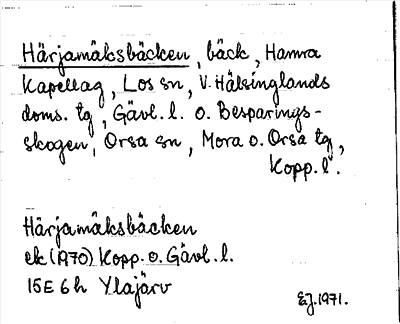 Härjamäksbäcken, bäck, Hamra
Kapellag, Los sn, V. Hälsinglands
doms. tg, Gävl. l. o. Besparings-
skogen, Orsa sn, Mora o. Orsa tg,
Kopp. l.
Härjamäksbäcken
ek (A70) Kopp. o. Gävl. l.
15E 6h Ylajärv
EJ. 1971.